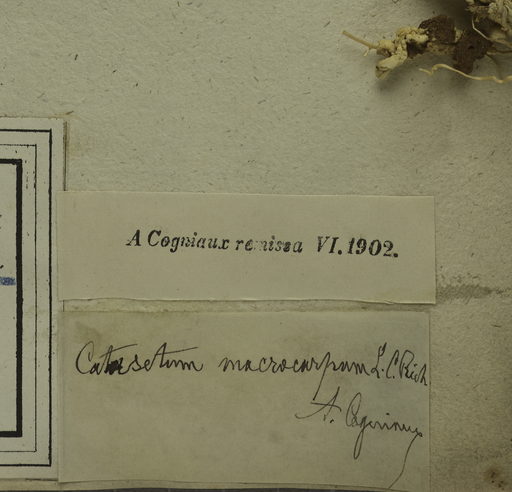 A Cogniaux remissa VI. 1902.
Catasetum macrocarpum L. C. Rich
A. Cogniaux